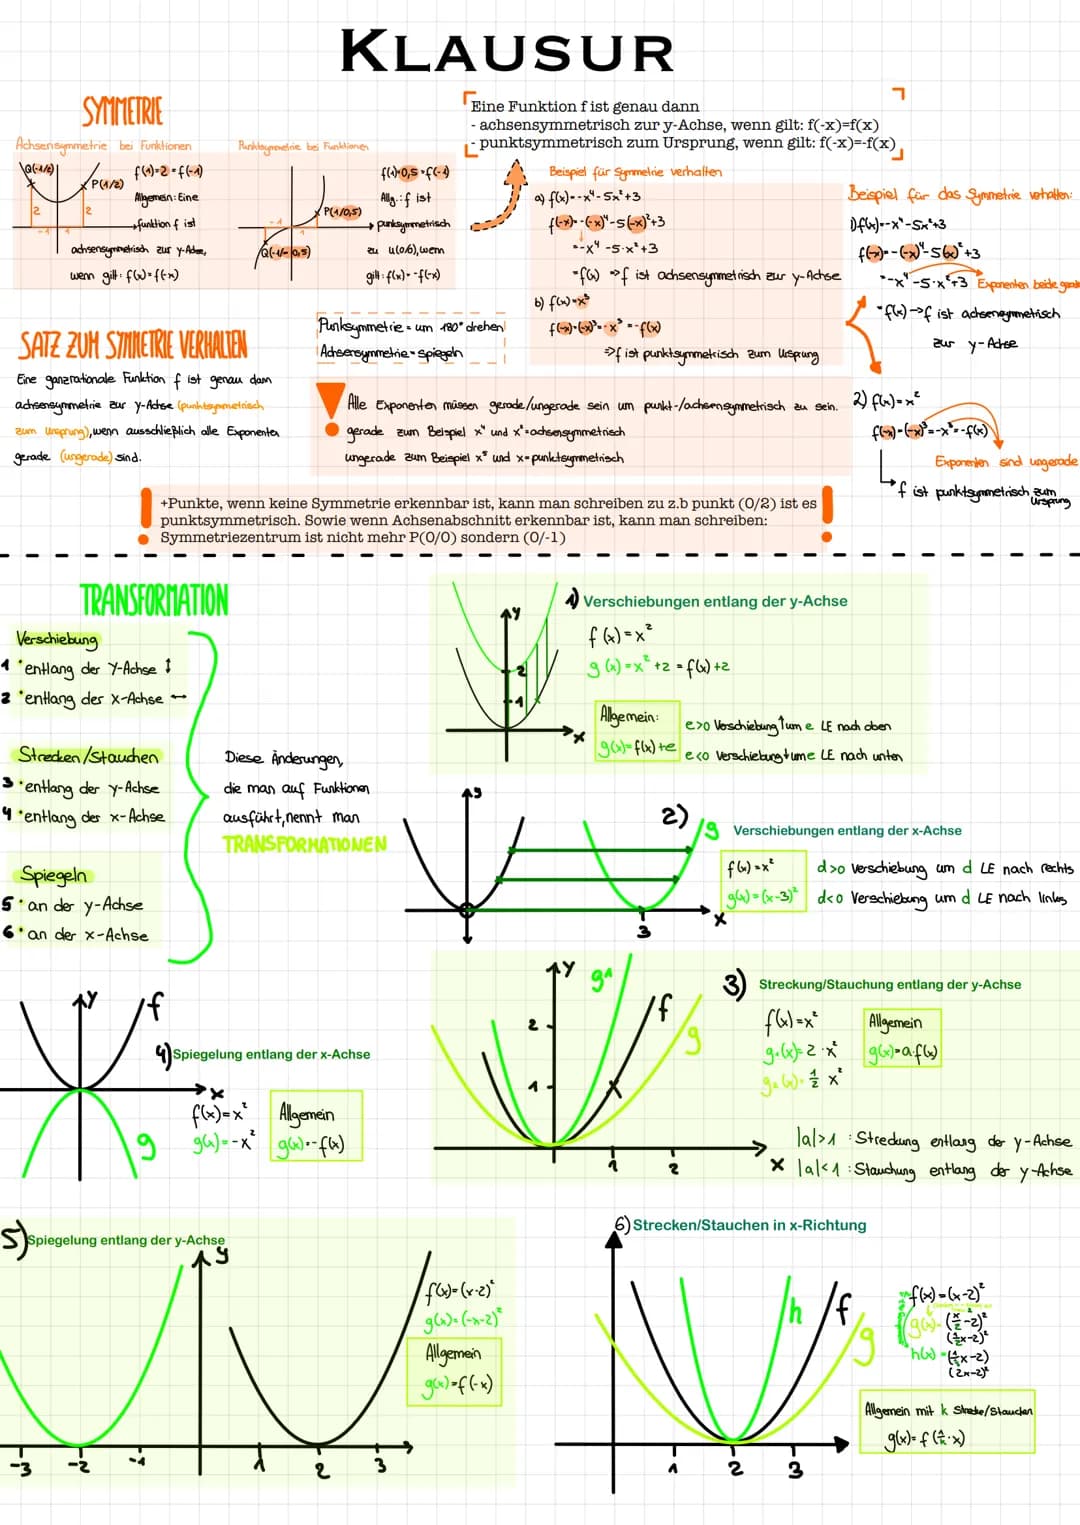 KLAUSUR
SYMMETRIE
Achsensymmetrie bei Funktionen
Q(-1/2)
P(1/2)
2
2
-1
1
f(1)=2=f(-1)
Allgemein: Eine
funktion f ist
achsensymmetrisch zur y-Achse,
wenn gilt: f(x)=f(-x)
Punktsymmetrie bei Funktionen
P(1/0,5)
-1
Q(-1/-0,5)
f(1)=0,5=f(-1)
Allg.: f ist
punksymmetrisch
zu u(0/0), wenn
gilt: f(x)=-f(-x)
Eine Funktion f ist genau dann
- achsensymmetrisch zur y-Achse, wenn gilt: f(-x)=f(x)
- punktsymmetrisch zum Ursprung, wenn gilt: f(-x)=-f(x)
Beispiel für Symmetrie verhalten
a) f(x)=-x⁴-5x²+3
f(-x)=-(-x)⁴-5(-x)²+3
=-x⁴-5·x²+3
=f(x) ⇒f ist achsensymmetrisch zur y-Achse
b) f(x)=x³
f(-x)=(-x)³=-x³=-f(x)
⇒f ist punktsymmetrisch zum Ursprung
Beispiel für das Symmetrie verhalten:
1) f(x)=-x⁴-5x²+3
f(-x)=-(-x)⁴-5(-x)²+3
=-x⁴-5·x²+3 Exponenten beide gerade
=f(x)→f ist achsensymmetrisch
zur y-Achse
2) f(x)=x²
f(-x)=(-x)³=-x³=-f(x)
Exponenten sind ungerade
f ist punktsymmetrisch zum
Ursprung
Punksymmetrie = um 180° drehen
Achsensymmetrie = Spiegeln
SATZ ZUM SYMMETRIE VERHALTEN
Eine ganzrationale Funktion f ist genau dann
achsensymmetrie zur y-Achse (punktsymmetrisch
zum Ursprung), wenn ausschließlich alle Exponenten
gerade (ungerade) sind.
Alle Exponenten müssen gerade/ungerade sein um punkt-/achsensymmetrisch zu sein.
gerade zum Beispiel x⁴ und x²=achsensymmetrisch
ungerade zum Beispiel x³ und x=punktsymmetrisch
+Punkte, wenn keine Symmetrie erkennbar ist, kann man schreiben zu z.b punkt (0/2) ist es
punktsymmetrisch. Sowie wenn Achsenabschnitt erkennbar ist, kann man schreiben:
Symmetriezentrum ist nicht mehr P(0/0) sondern (0/-1)
TRANSFORMATION
Verschiebung
1 • entlang der Y-Achse ↕
2 • entlang der X-Achse ↔
Strecken/Stauchen
3 • entlang der y-Achse
4 • entlang der x-Achse
Spiegeln
5 • an der y-Achse
6 • an der x-Achse
Diese Änderungen,
die man auf Funktionen
ausführt, nennt man
TRANSFORMATIONEN
1) Verschiebungen entlang der y-Achse
y
2
1
x
f(x)=x²
g(x)=x²+2=f(x)+2
Allgemein:
g(x)=f(x)+e
e>0 Verschiebung ↑ um e LE nach oben
e<0 Verschiebung ↓ um e LE nach unten
2)
Verschiebungen entlang der x-Achse
y
g
3
x
f(x)=x²
g(x)=(x-3)²
d>0 Verschiebung um d LE nach rechts
d<0 Verschiebung um d LE nach links
3) Streckung/Stauchung entlang der y-Achse
y
g1
f
g
2
1
1
2
x
f(x)=x²
g₁(x)=2·x²
g₂(x)=½x²
Allgemein
g(x)=a·f(x)
|a|>1: Streckung entlang der y-Achse
|a|<1: Stauchung entlang der y-Achse
4) Spiegelung entlang der x-Achse
y
f
x
g
f(x)=x²
g(x)=-x²
Allgemein
g(x)=-f(x)
5) Spiegelung entlang der y-Achse
y
-3
-2
-1
1
2
3
f(x)=(x-2)²
g(x)=(-x-2)²
Allgemein
g(x)=f(-x)
6) Strecken/Stauchen in x-Richtung
h
f
g
1
2
3
f(x)=(x-2)²
g(x)=(x/2-2)²
(½x-2)²
(2x-2)²
Allgemein mit k Strecke/Stauchen
g(x)=f(1/k·x)